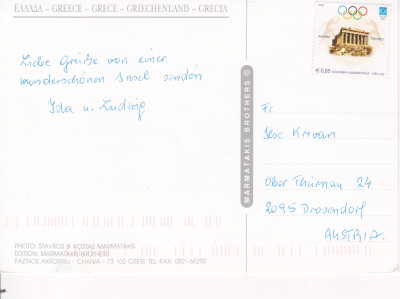 ΕΛΛΑΔΑ – GREECE – GRECE – GRIECHENLAND – GRECIA
Liebe Grüße von einer
wunderschönen Insel senden
Ida u. Ludwig
MARMATAKIS BROTHERS
€ 0,65
Fr.
Ober Thürnau 24
2095 Drosendorf
AUSTRIA
PHOTO: STAVROS & KOSTAS MARMATAKIS
EDITION: MARMATAKIS BROTHERS
PAZINOS AKROTERI - CHANIA - 73 100 CRETE TEL.- FAX. 0821-66290